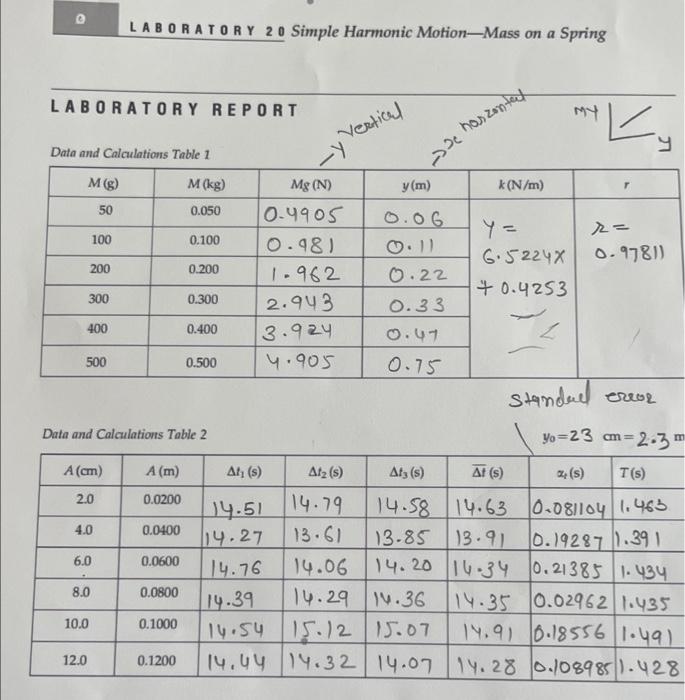 LABORATORY 20 Simple Harmonic Motion—Mass on a Spring
LABORATORY REPORT
→y Vertical
→x horizontal
My
y
Data and Calculations Table 1
M (g) M (kg) Mg (N) y (m) k (N/m) r
50 0.050 0.4905 0.06 Y = r =
100 0.100 0.981 0.11 6.5224X 0.97811
200 0.200 1.962 0.22 + 0.4253
300 0.300 2.943 0.33
400 0.400 3.924 0.47
500 0.500 4.905 0.75
Standard error
Data and Calculations Table 2 y₀ = 23 cm = 2.3 m
A (cm) A (m) Δt₁ (s) Δt₂ (s) Δt₃ (s) Δt̅ (s) αₜ (s) T (s)
2.0 0.0200 14.51 14.79 14.58 14.63 0.081104 1.463
4.0 0.0400 14.27 13.61 13.85 13.91 0.19287 1.391
6.0 0.0600 14.76 14.06 14.20 14.34 0.21385 1.434
8.0 0.0800 14.39 14.29 14.36 14.35 0.02962 1.435
10.0 0.1000 14.54 15.12 15.07 14.91 0.18556 1.491
12.0 0.1200 14.44 14.32 14.07 14.28 0.108985 1.428